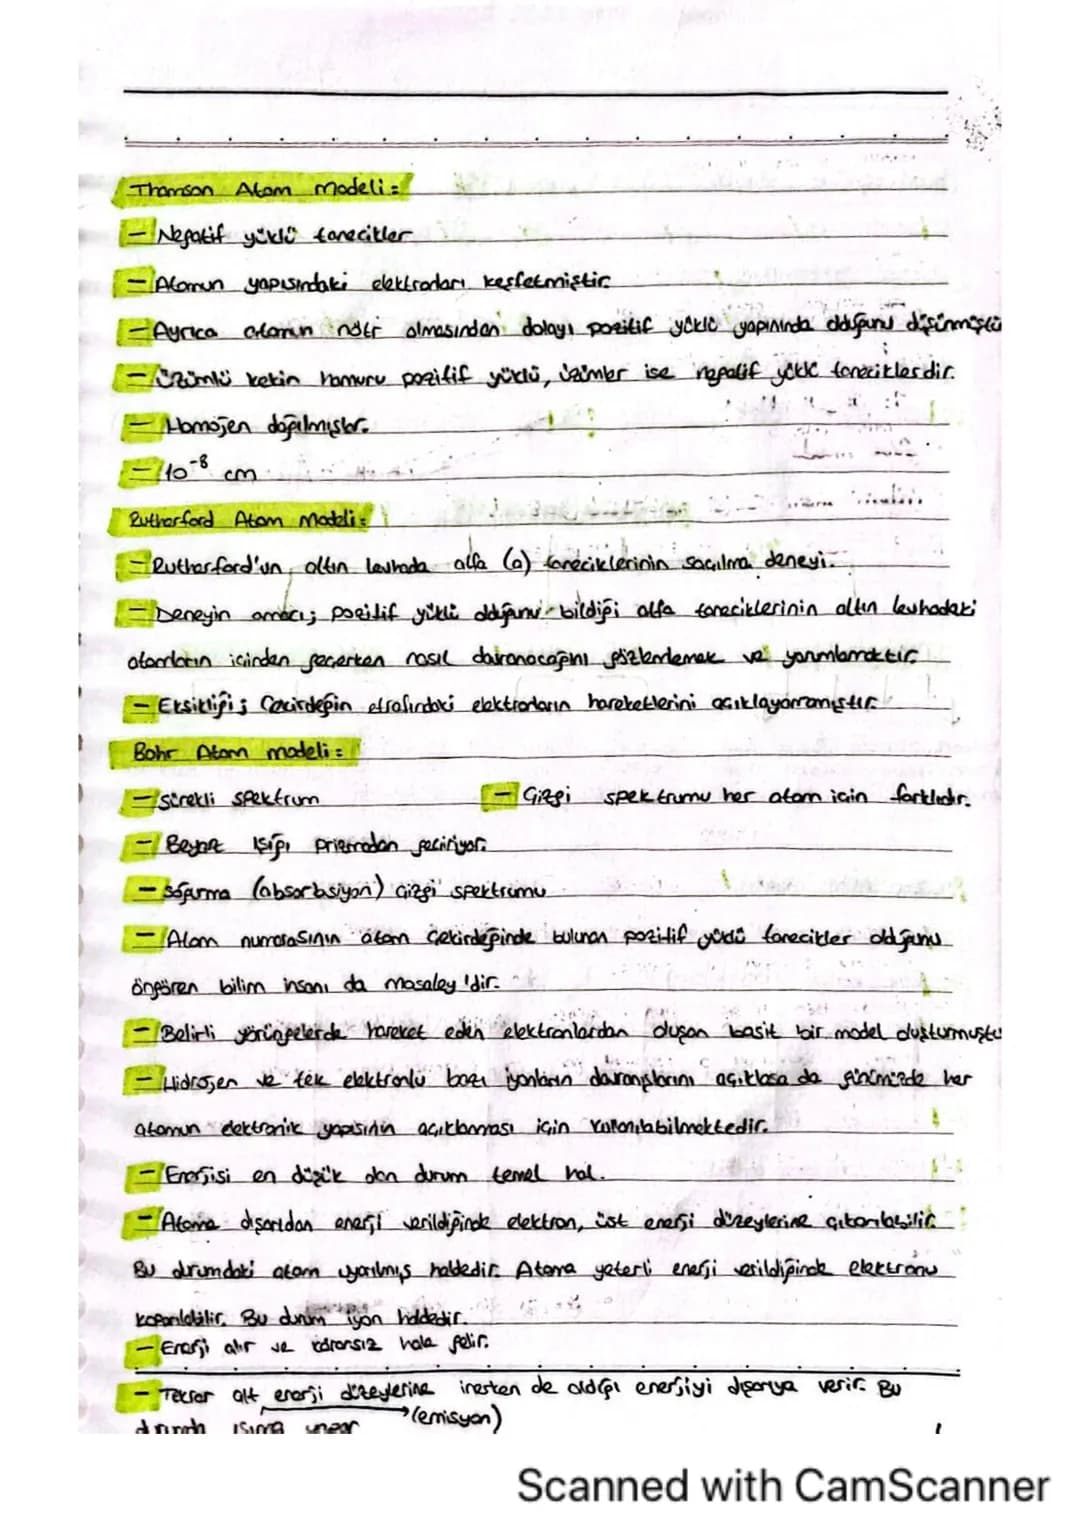 Thomson Atom Modeli:
- Negatif yüklü tanecikler
- Atomun yapısındaki elektronları keşfetmiştir.
- Ayrıca atomun nötr olmasından dolayı pozitif yüklü yapınında olduğunu düşünmüştü
- Üzümlü kekin hamuru pozitif yüklü, üzümler ise negatif yüklü taneciklerdir.
- Homojen dağılmışlar.
- 10⁻⁸ cm
Rutherford Atom Modeli:
- Rutherford'un altın levhada alfa (α) taneciklerinin saçılma deneyi.
- Deneyin amacı; pozitif yüklü olduğunu bildiği alfa taneciklerinin altın levhadaki
atomların içinden geçerken nasıl davranacağını gözlemlemek ve yorumlamaktır.
- Eksikliği; Çekirdeğin etrafındaki elektronların hareketlerini açıklayamamıştır.
Bohr Atom modeli:
- Sürekli spektrum - Çizgi spektrumu her atom için farklıdır.
- Beyaz ışığı prizmadan geçiriyor.
- Soğurma (absorbsiyon) çizgi spektrumu
- Atom numarasının atom çekirdeğinde bulunan pozitif yüklü tanecikler olduğunu
öngören bilim insanı da Mosaley'dir.
- Belirli yörüngelerde hareket eden elektronlardan oluşan basit bir model oluşturmuştu
- Hidrojen ve tek elektronlu bazı iyonların davranışlarını açıklasa da günümüzde her
atomun elektronik yapısının açıklaması için kullanılabilmektedir.
- Enerjisi en düşük olan durum temel hal.
- Atoma dışarıdan enerji verildiğinde elektron, üst enerji düzeylerine çıkarılabilir.
Bu durumdaki atom uyarılmış haldedir. Atoma yeterli enerji verildiğinde elektronu
koparılabilir. Bu durum iyon haldedir.
- Enerji alır ve kararsız hale gelir.
- Tekrar alt enerji düzeylerine inerken de aldığı enerjiyi dışarıya verir. Bu
(emisyon)
durumda ışıma yapar
Scanned with CamScanner